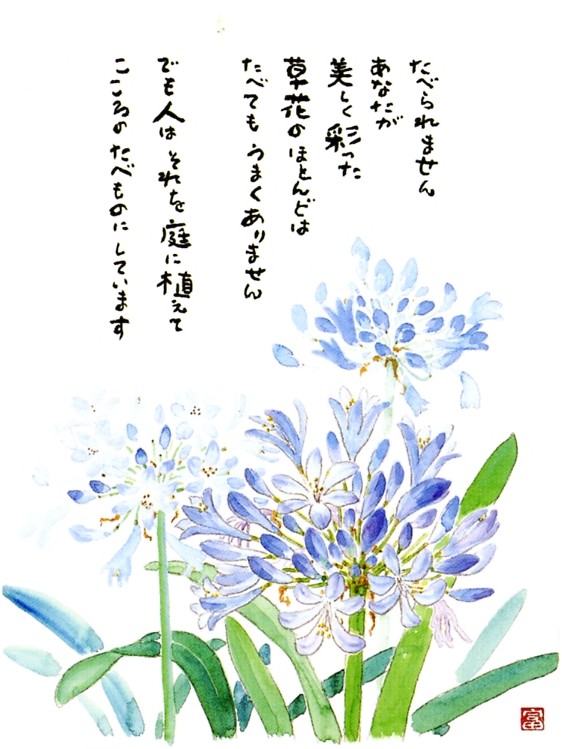 たべられません
あなたが
美しく彩った
草花のほとんどは
たべてもうまくありません
でも人はそれを庭に植えて
こころのたべものにしています
富